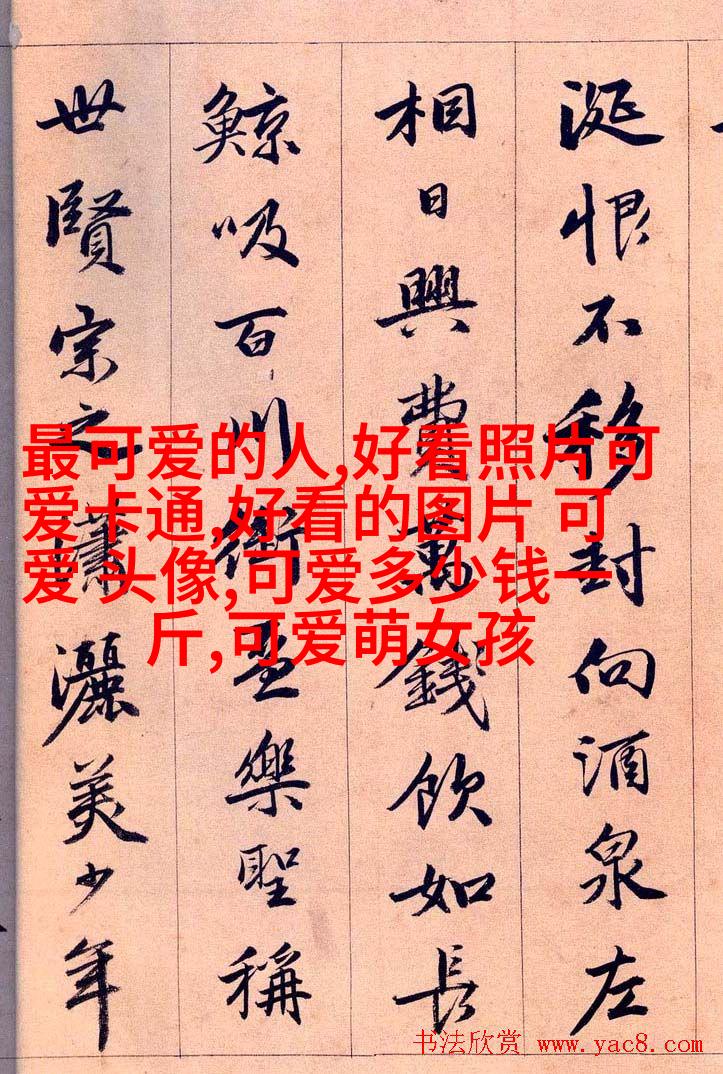 涎恨不移封向酒泉左
相日興費萬錢飲如長
鯨吸百川銜盃樂聖稱
世賢宗之瀟灑美少年
最可爱的人,好看照片可
爱卡通,好看的图片 可
爱 头像,可爱多少钱一
斤,可爱萌女孩
书法欣赏 www.yac8.com